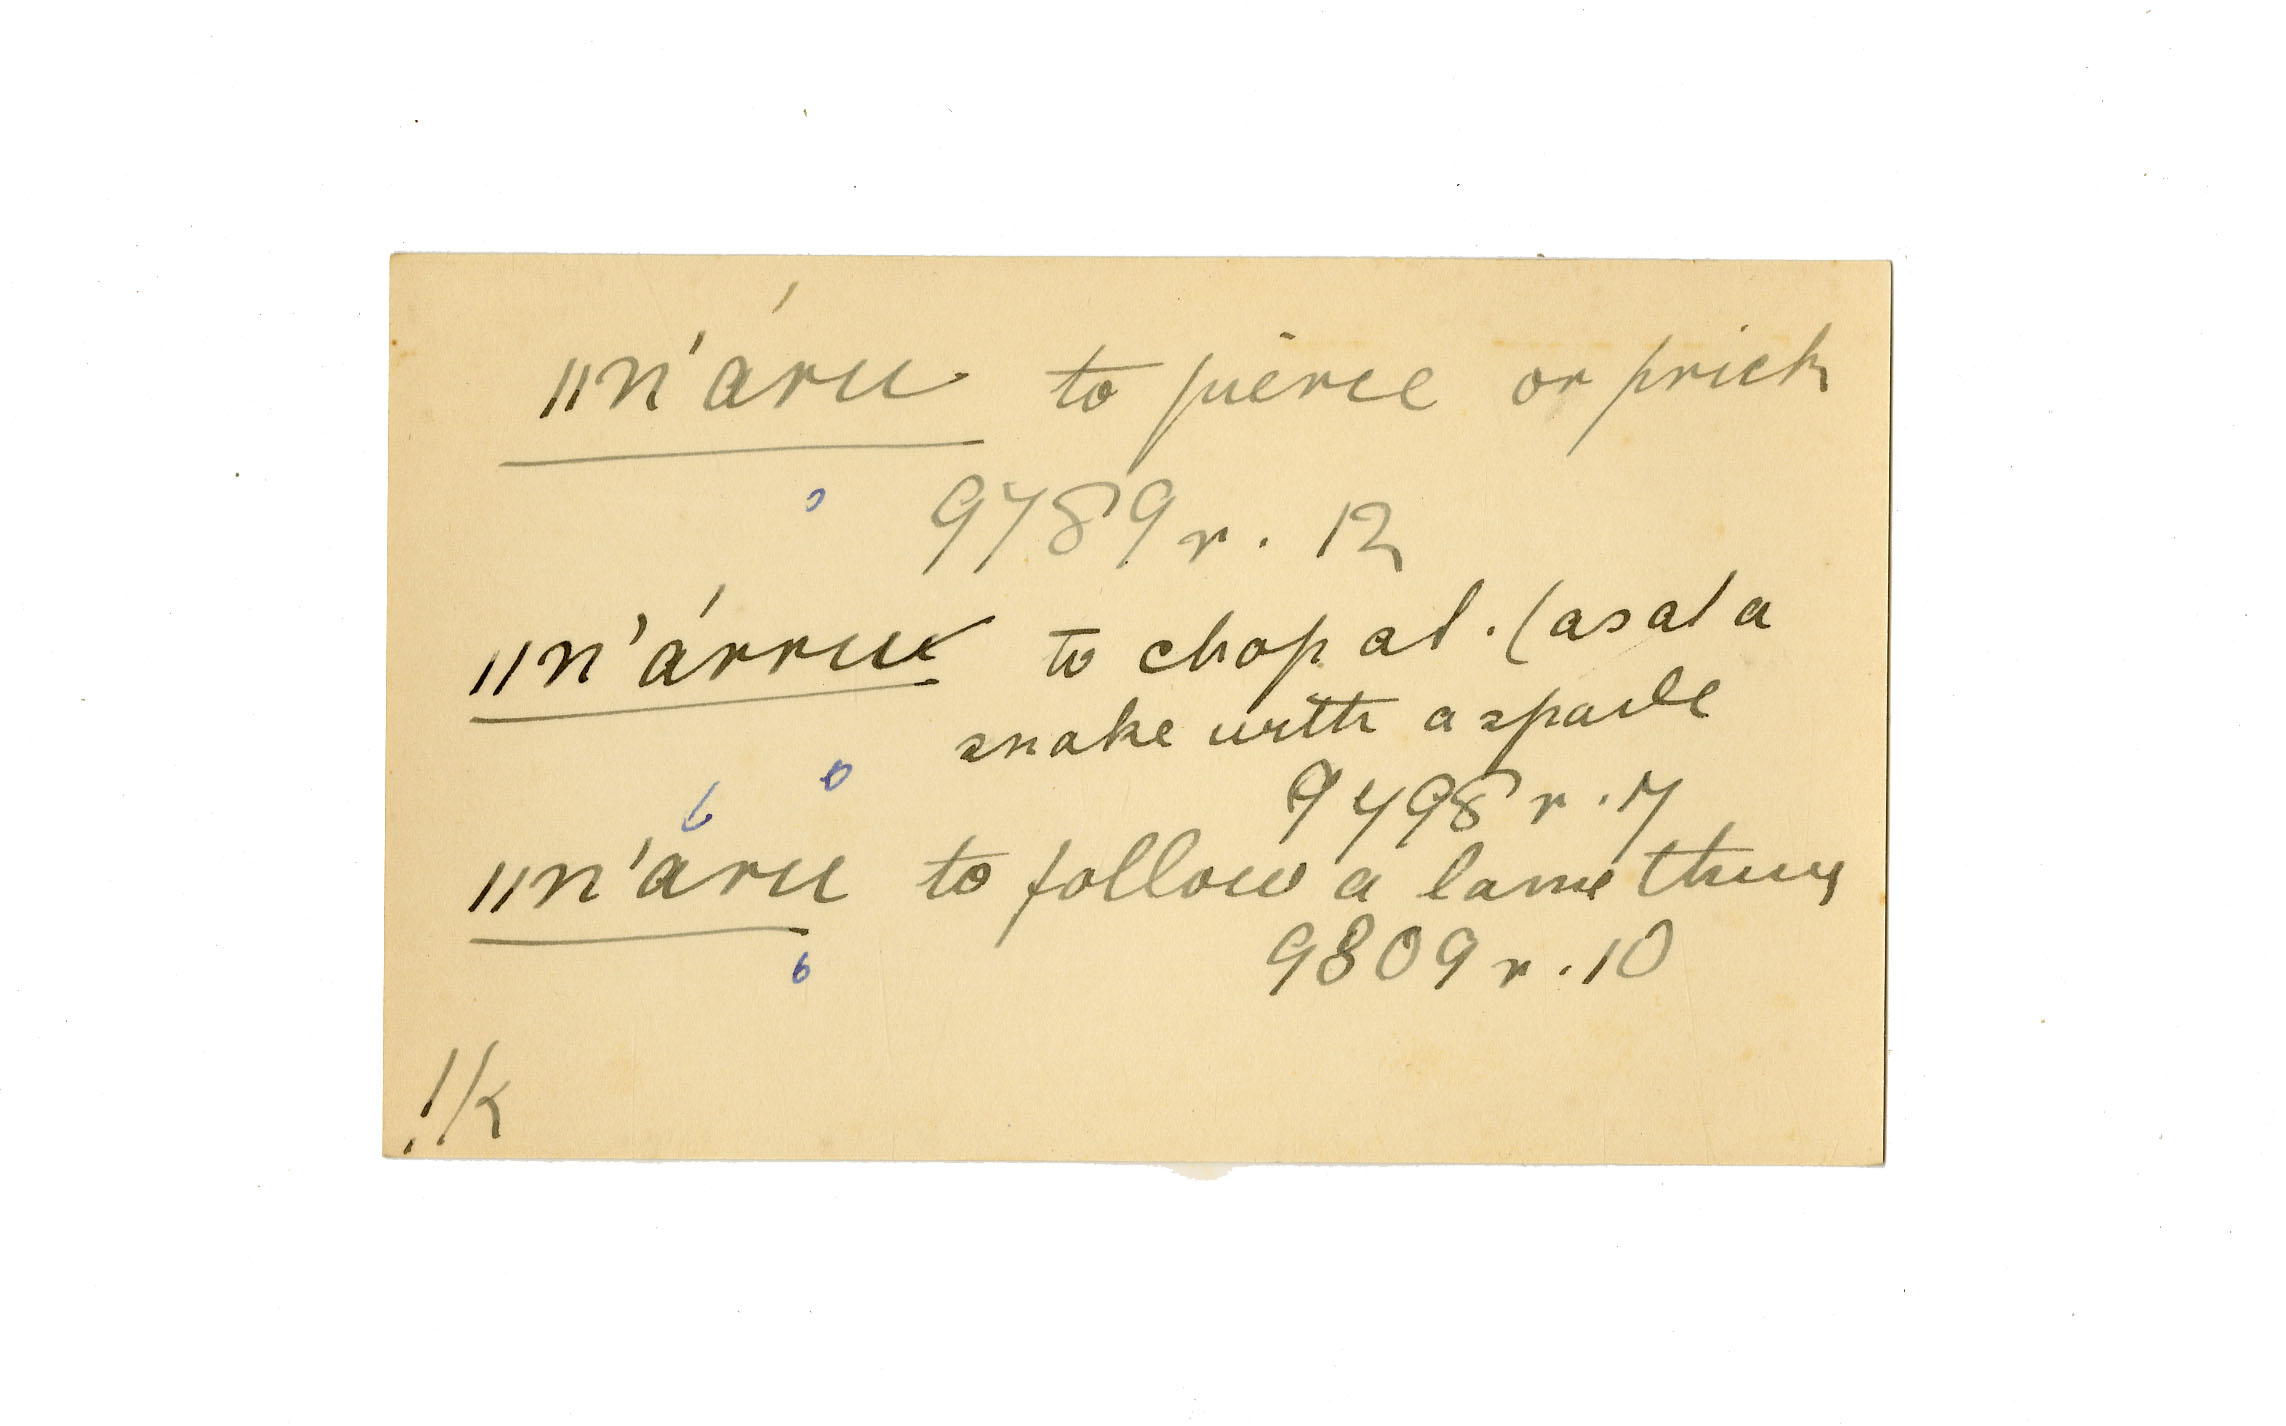 ǁn'áru to pierce or prick
9789 r. 12
ǁn'árru to chop at. (as at a
snake with a spade
9798 r. 7
ǁn'aru to follow a lame thing
9809 r. 10
!k